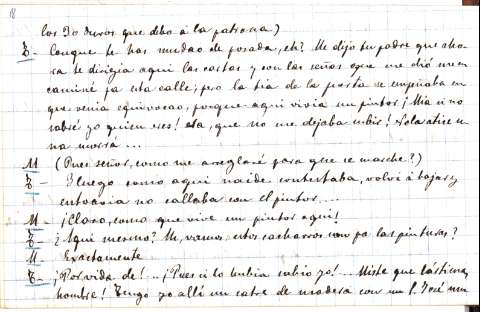 18
los 30 duros que debo á la patrona)
E- Conque te has mudao de posada, eh? Me dijo tu padre que aho-
ra te dirigia aqui las cartas y con las señas que me dió m'en-
caminé pa esta calle; pero la tia de la porta se empeñaba en
que venia equivocao, porque aqui vivia un pintor ¡Mia si no
sabré yo quien eres! ea, que no me dejaba subir! Solaticé u-
na morrá...
M (Pues señor, como me arreglaré para que se marche?)
E- I luego como aqui naide contestaba, volví á bajar y
entoavia no callaba con el pintor....
M- ¡Claro, como que vive un pintor aqui!
E- ¿Aqui mesmo? Me, vamos estos cacharros son pa las pinturas?
M- Exactamente
E- ¡Por vida de!...¡Pues si lo hubia sabio yo!... Miste que lástima,
hombre! Tengo yo alli un catre de madera con un S. José mu